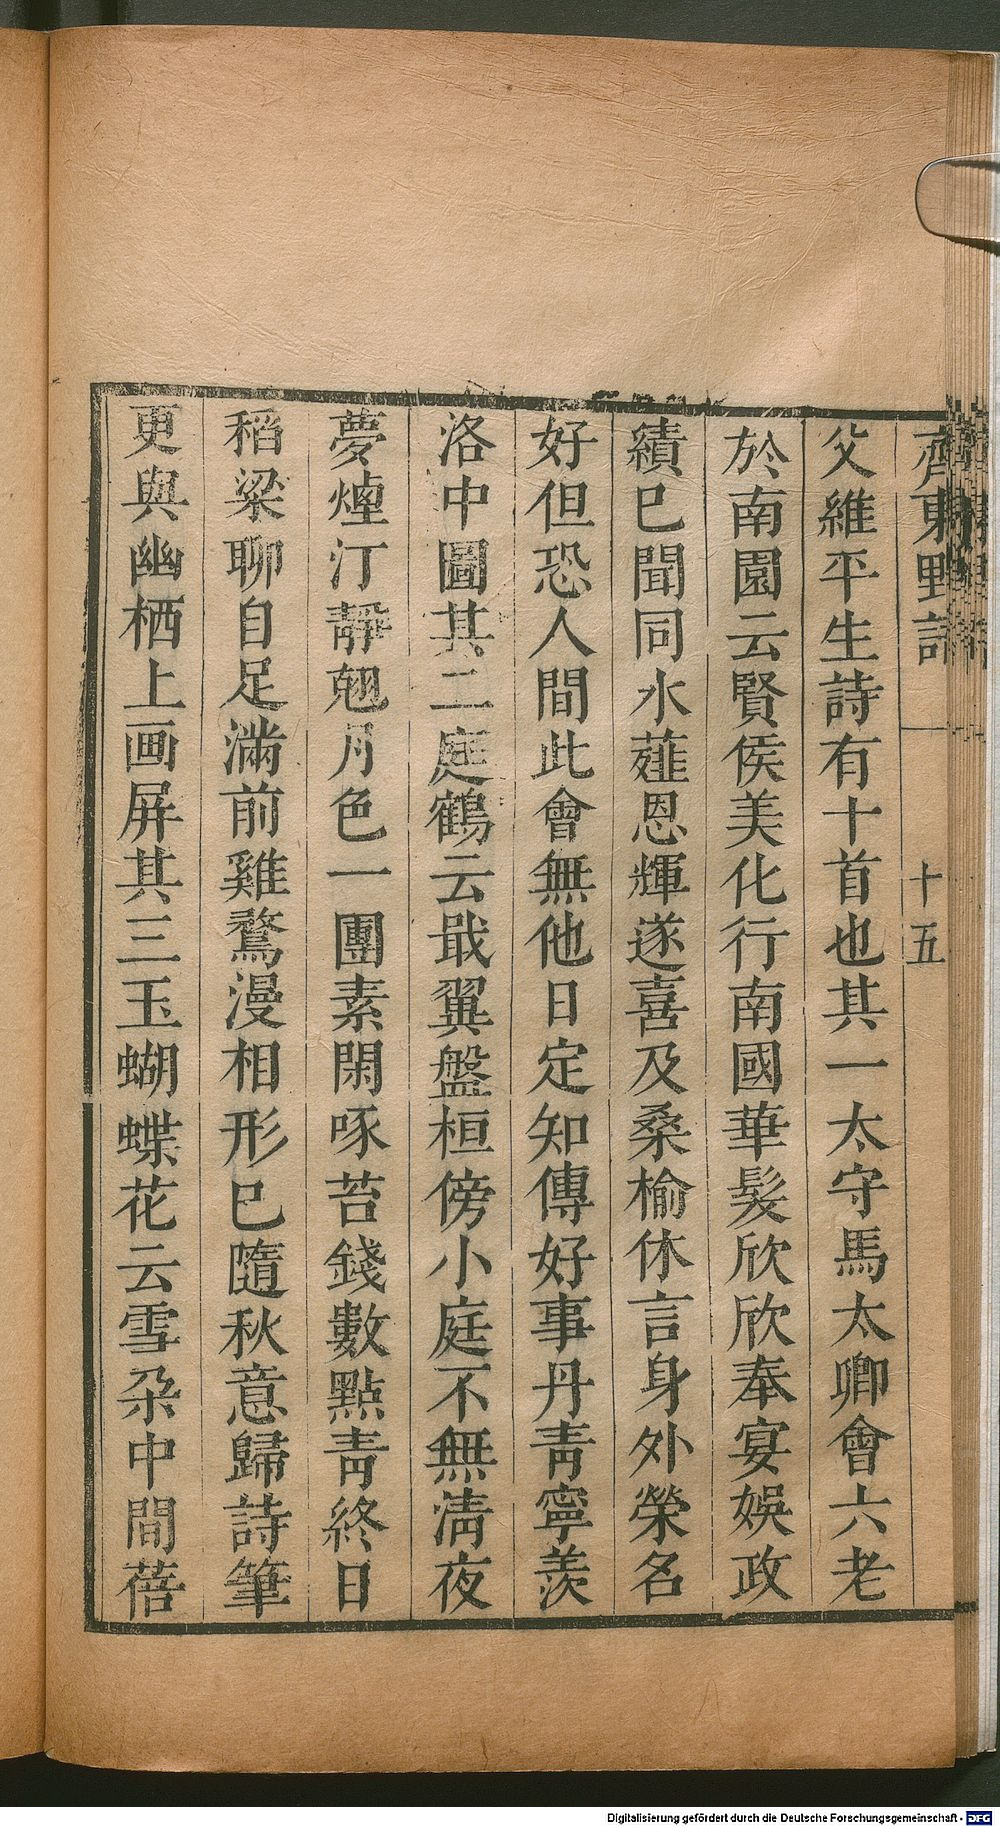 齊東野語
十五
父維平生詩有十首也其一太守馬太卿會六老
於南園云賢侯美化行南國華髮欣欣奉宴娛政
績巳聞同水薤恩輝遂喜及桑榆休言身外榮名
好但恐人間此會無他日定知傳好事丹青寧羨
洛中圖其二庭鶴云戢翼盤桓傍小庭不無清夜
夢煙汀靜翹月色一團素閑啄苔錢數點青終日
稻粱聊自足滿前雞鶩漫相形巳隨秋意歸詩筆
更與幽栖上画屏其三玉蝴蝶花云雪朶中間蓓
Digitalisierung gefördert durch die Deutsche Forschungsgemeinschaft - DFG